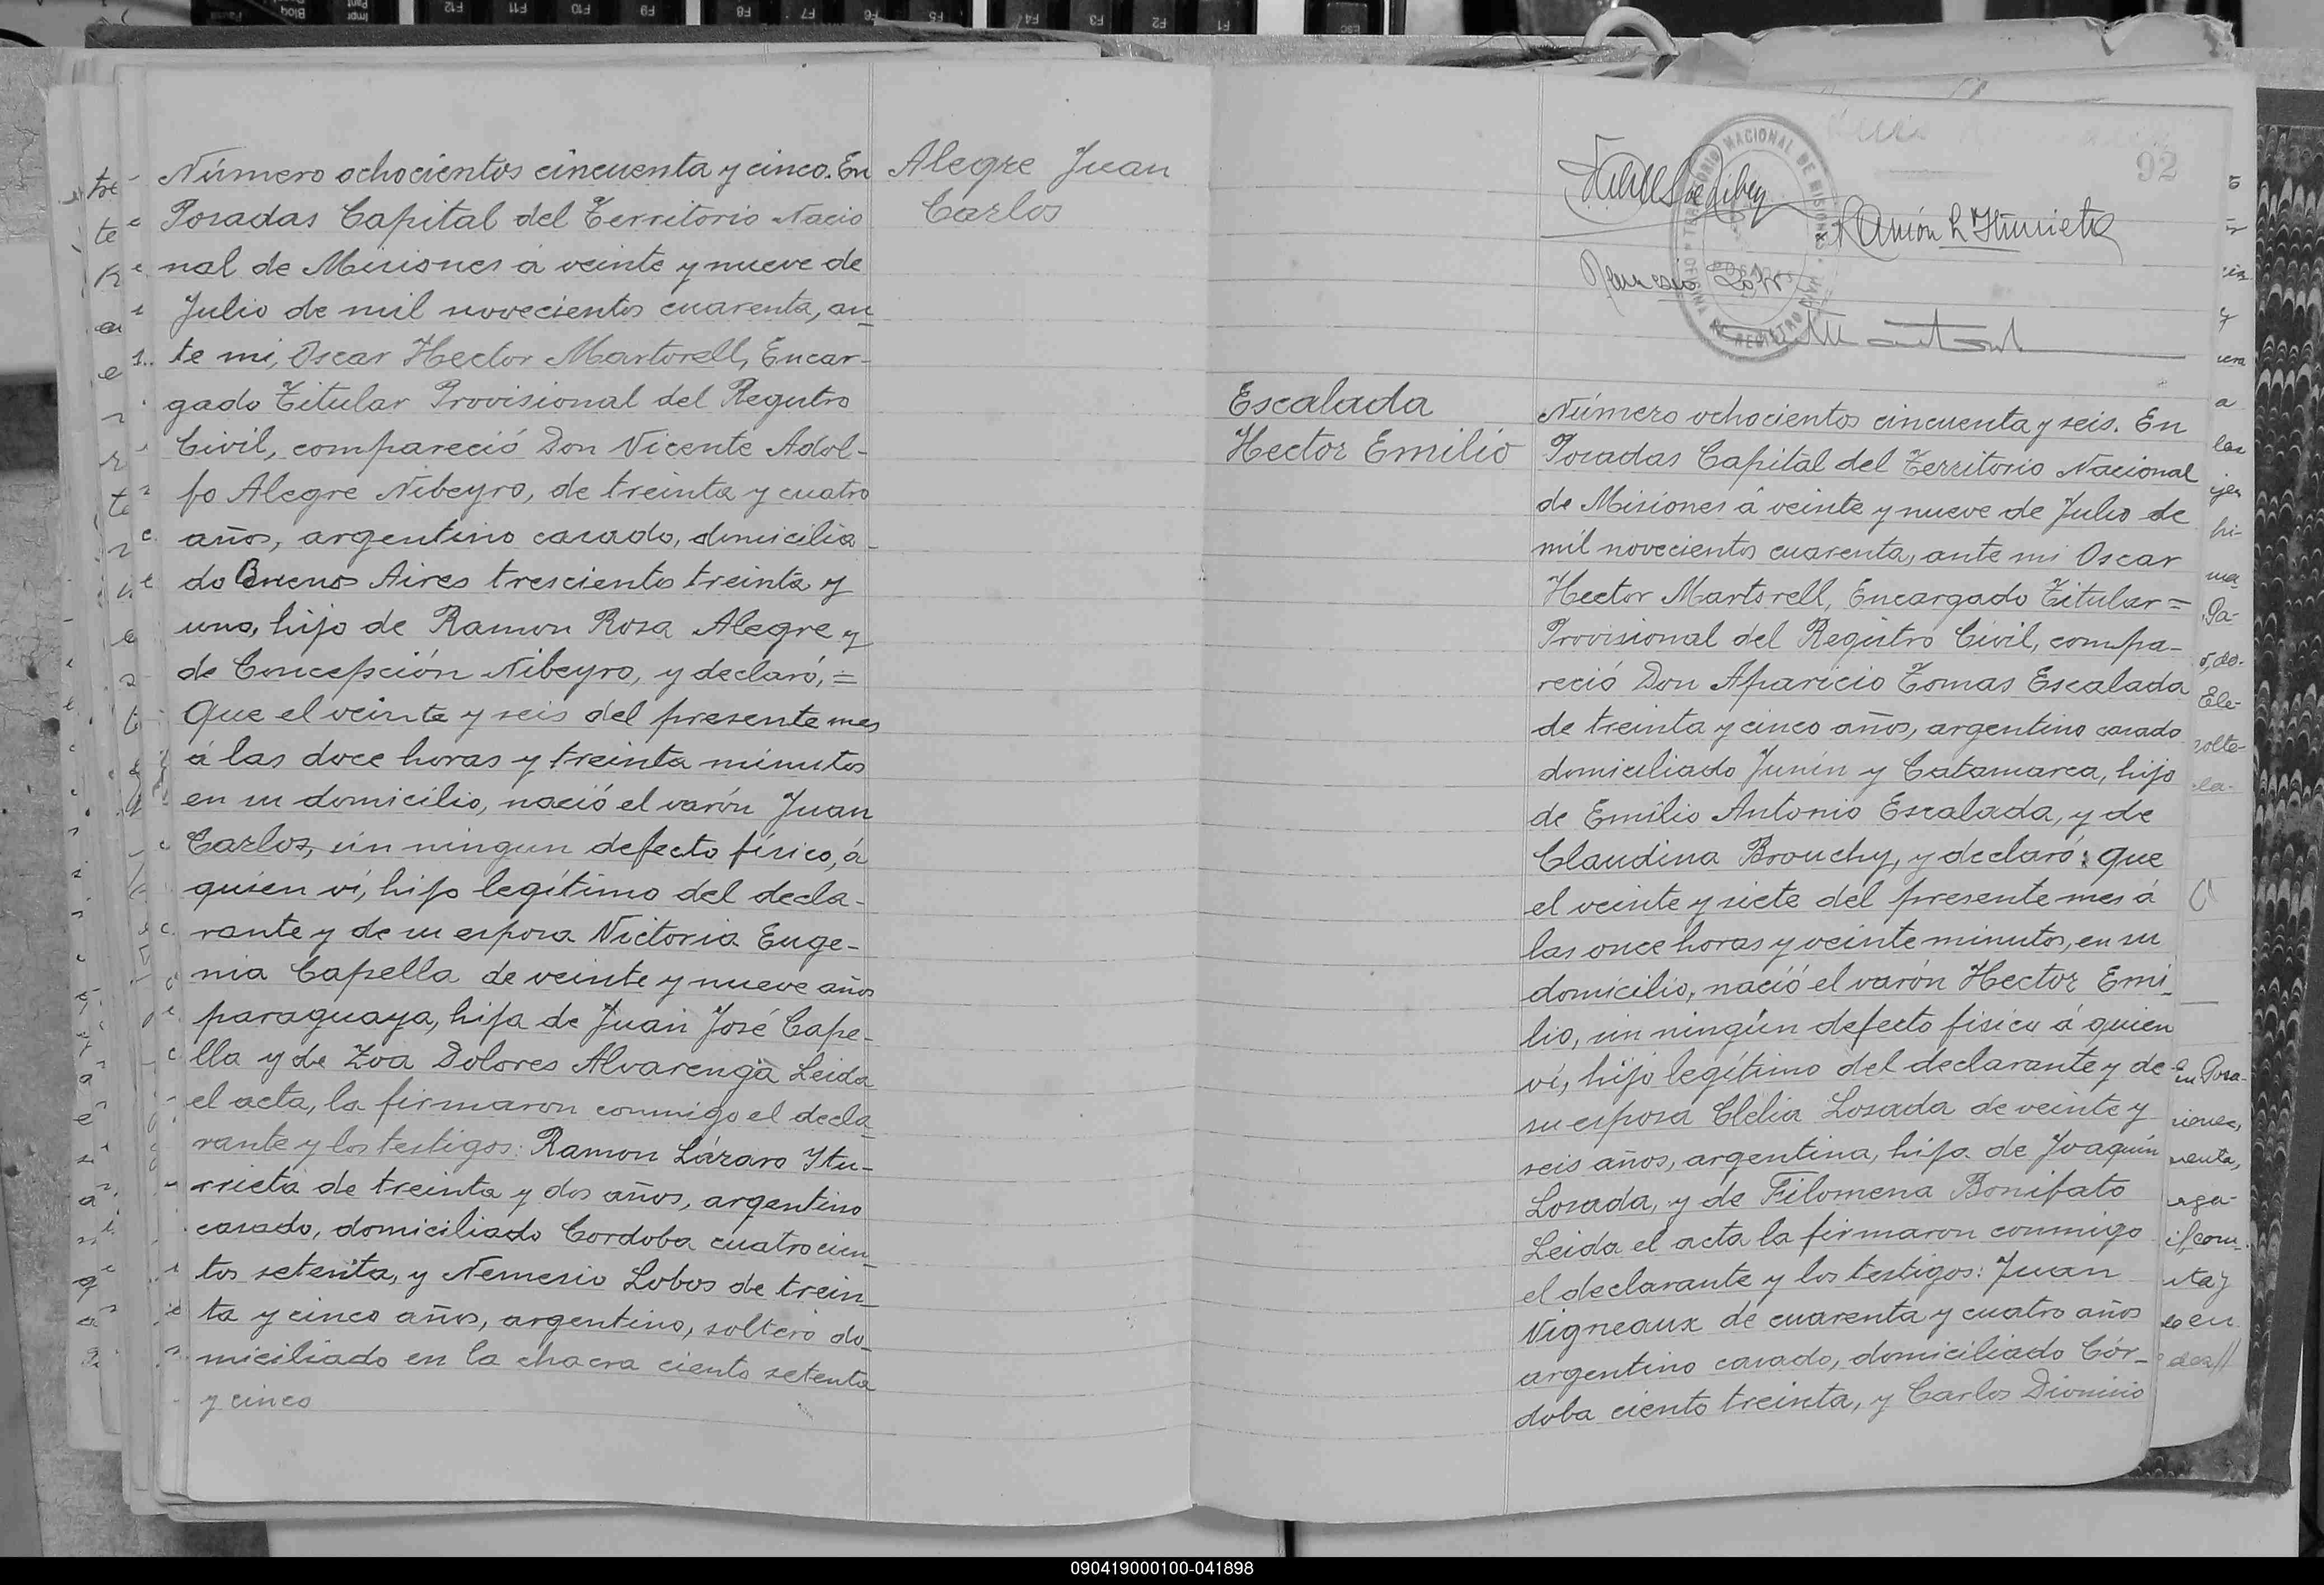 Número ochocientos cincuenta y cinco. En
Posadas Capital del Territorio Nacio
nal de Misiones á veinte y nueve de
Julio de mil novecientos cuarenta, an
te mi, Oscar Hector Martorell, Encar-
gado Titular Provisional del Registro
Civil, compareció Don Vicente Adol-
fo Alegre Nibeyro, de treinta y cuatro
años, argentino casado, domicilia-
do Buenos Aires trescientos treinta y
uno, hijo de Ramon Rosa Alegre y
de Concepción Nibeyro, y declaró, =
Que el veinte y seis del presente mes
á las doce horas y treinta minutos
en su domicilio, nació el varón Juan
Carlos, sin ningun defecto físico, á
quien ví, hijo legítimo del decla-
rante y de su esposa Victoria Euge-
nia Capella de veinte y nueve años
paraguaya, hija de Juan José Cape-
lla y de Zoa Dolores Alvarenga Leida
el acta, la firmaron conmigo el decla-
rante y los testigos: Ramon Lázaro Itu-
rrieta de treinta y dos años, argentino
casado, domiciliado Cordoba cuatrocien-
tos setenta, y Nemesio Lobos de trein-
ta y cinco años, argentino, soltero do-
miciliado en la chacra ciento setenta
y cinco
Alegre Juan
Carlos
92
TERRITORIO NACIONAL DE MISIONES
POSADAS
OFICINA DE REGISTRO
Ramón L Iturrieta
Nemesio Lobos
Escalada
Hector Emilio
Número ochocientos cincuenta y seis. En
Posadas Capital del Territorio Nacional
de Misiones á veinte y nueve de Julio de
mil novecientos cuarenta, ante mi Oscar
Hector Martorell, Encargado Titular =
Provisional del Registro Civil, compa-
reció Don Aparicio Tomas Escalada
de treinta y cinco años, argentino casado
domiciliado Junín y Catamarca, hijo
de Emilio Antonio Escalada, y de
Claudina Brouchy, y declaró: Que
el veinte y siete del presente mes á
las once horas y veinte minutos, en su
domicilio, nació el varón Hector Emi-
lio, sin ningún defecto físico á quien
ví, hijo legítimo del declarante y de
su esposa Clelia Losada de veinte y
seis años, argentina, hija de Joaquín
Losada, y de Filomena Bonifato
Leida el acta la firmaron conmigo
el declarante y los testigos: Juan
Vigneaux de cuarenta y cuatro años
argentino casado, domiciliado Cór-
doba ciento treinta, y Carlos Dionisio
090419000100-041898